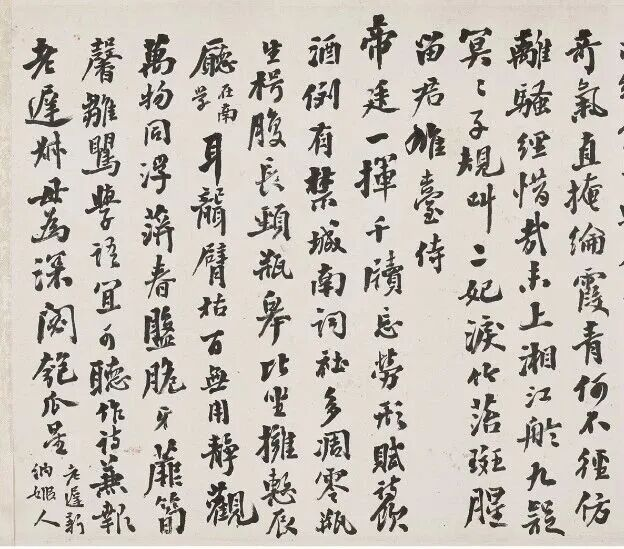 奇氣直掩綸霞青何不徑仿
離騷經惜哉未上湘江舲九疑
冥〻子規叫二妃淚竹落斑腥
留君雄臺侍
帝廷一揮千牘忘勞形賦詩飲
酒例有禁城南詞社多凋零瓶
生枵腹長頸瓶舉比坐擁愁依
廳在南学耳聾臂枯百無用靜觀
萬物同浮萍春盤脆牙蘼筍
馨雛鸎學語宜可聽作詩兼報
老遲叔毋為深閟匏瓜星
老遲新
納姬人